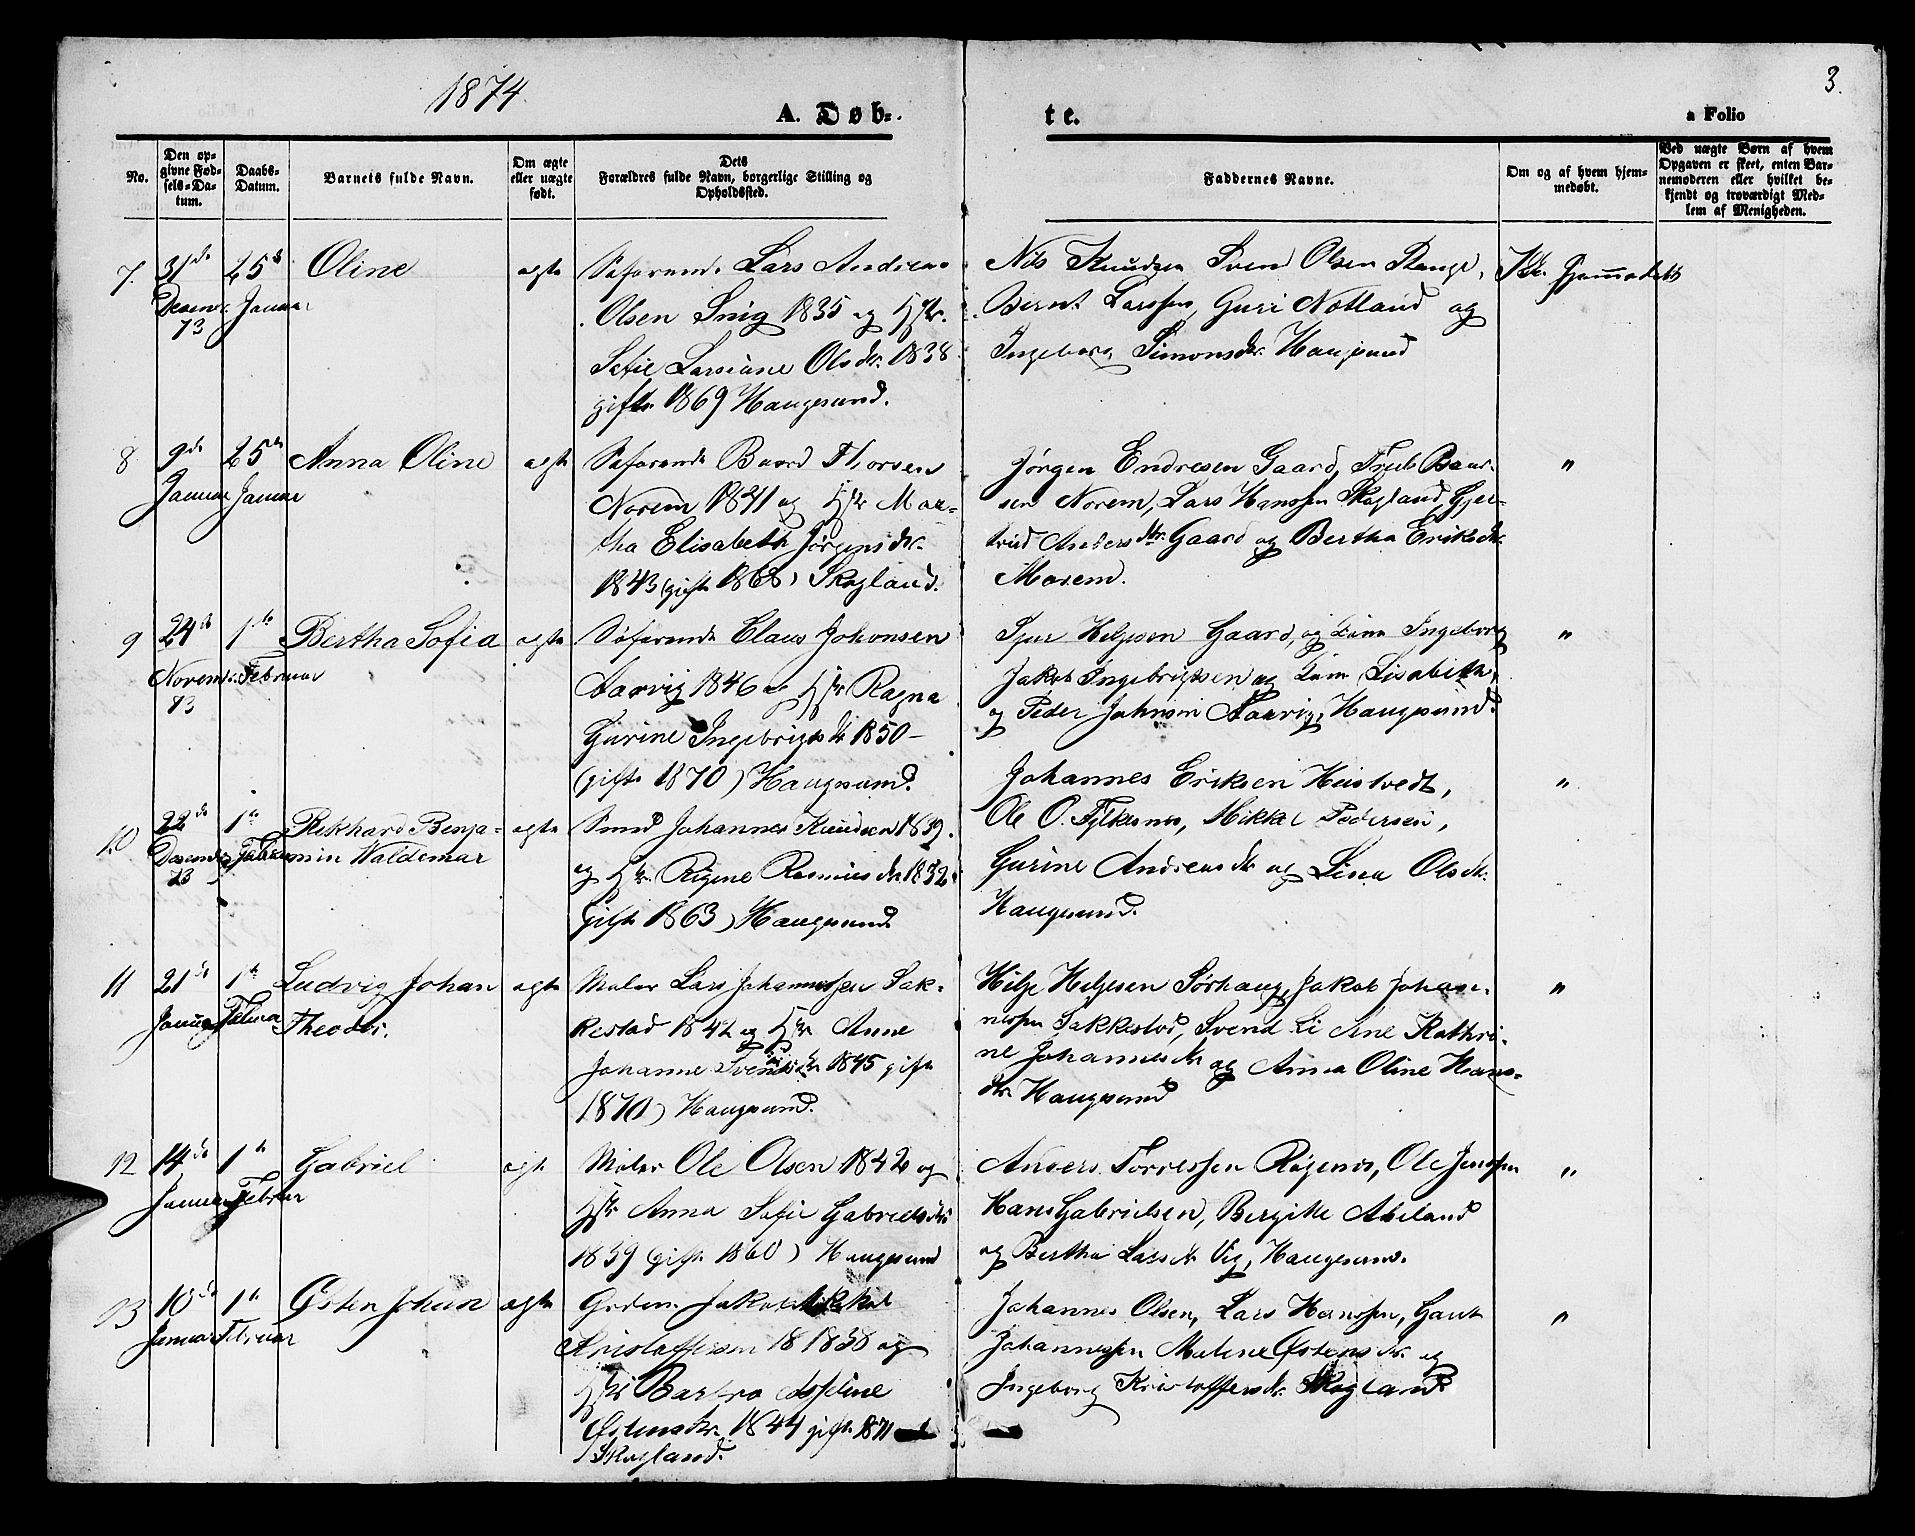 1874.
3.
A. Døb=
te.
a Folio
No.
Den op=
givne Fød=
sels=Da=
tum.
Daabs=
Datum.
Barnets fulde Navn.
Om ægte
eller uægte
født.
Dets
Forældres fulde Navn, borgerlige Stilling og
Opholdssted.
Faddernes Navne.
Om og af hvem hjem=
medøbt.
Ved uægte Børn af hvem
Opgaven er skeet, enten Bar=
nemoderen eller hvilket be=
kjendt og troværdigt Med=
lem af Menigheden.
7.
31de
Decem.
73
25de
Januar
Oline
ægte
Søfarende Lars Andreas
Olsen Snig 1835 og Hstr.
Sofie Larsiane Olsdr. 1838
gifte 1869 Haugesund.
Nils Knudsen Svend Olsen Stange,
Bernt Larssen, Guri Notland og
Ingeborg Simonsdr. Haugesund
Ikke hjemmedøbt
8
9de
Januar
25de
Januar
Anna Oline
ægte
Søfarende Baard Thorsen
Norem 1841 og Hstr Mar=
tha Elisabeth Jørgensdr.
1843 (gifte 1868) Skogland.
Jørgen Endresen Gaard, Baar=
sen Norem, Lars Hanssen Skogland, Gjer=
trud Andersdtr. Gaard og Bertha Eriksdr.
Norem.
"
9
24de
Novem.
73
1ste
Februar
Bertha Sofia
ægte
Søfarende Claus Johonsen
Aarvig 1846 og Hstr Ragna
Gurine Ingebrigtsdr 1850-
(gifte 1870) Haugesund.
Sjur Helgesen Gaard, og Ingeborg
Jakob Ingebrigtsen og Lisabeth,
og Peder Johnsen Aarvig, Haugesund.
"
10
22de
Decem.
73
1ste
Februar
Rikhard Benja=
min Waldemar
ægte
Smed Johannes Knudsen 1839.
og Hstr. Rigene Rasmusdr 1832
gifte 1863) Haugesund.
Johannes Eriksen Hustvedt,
Ole O. Fylkesnes, Mikkel Pedersen,
Gurine Andreasdr og Lisea Olsdr.
Haugesund.
"
11
21de
Januar
1ste
Februar
Ludvig Johan
Theodor.
ægte
Maler Lars Johannessen Sak=
kestad 1842 og Hstr Anne
Johanne Svendsdr 1845 gifte
1870) Haugesund.
Helje Heljesen Sørhaug, Jakob Johan=
nessen Sakkestad, Svend Li Ane Kathri=
ne Johannesdr og Anna Oline Hans=
dr. Haugesund
"
12
14de
Januar
1ste
Februar
Gabriel
ægte
Maler Ole Olsen 1842 og
Hstr Anna Sofie Gabrielsdr
1839 (gifte 1860) Haugesund
Anders Torressen Røgenes, Ole Jenssen
Hans Gabrielsen, Bergitte Abeland
og Bertha Larsdr Vig, Haugesund.
"
13
10de
Januar
1ste
Februar
Østen Johan
ægte
Grdm. Jakob
Kristoffersen 18 1838 og
Hstr Barbra
Østensdr. 1844 gifte 1871
Skogland.
Johannes Olsen, Lars Hanssen, Gaut
Johannessen Malene Østensdr. og
Ingeborg Kristoffersdr. Skogland.
"